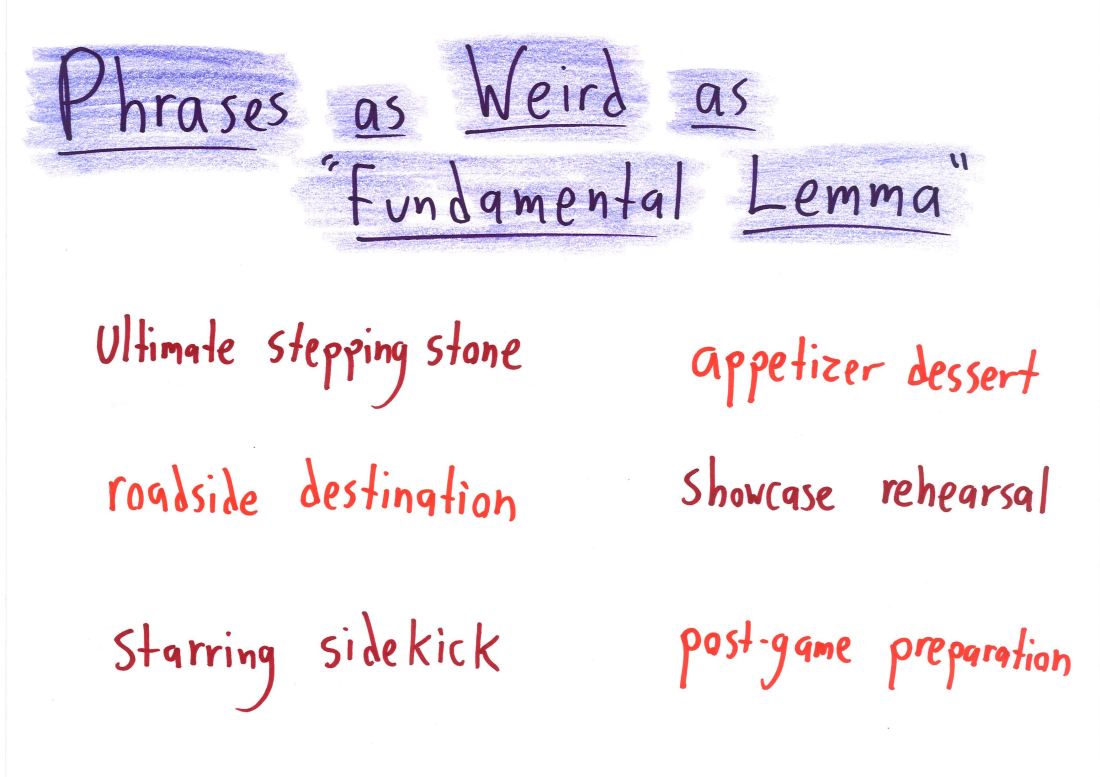 Phrases as Weird as
"Fundamental Lemma"
Ultimate stepping stone
appetizer dessert
roadside destination
Showcase rehearsal
Starring sidekick
post-game preparation